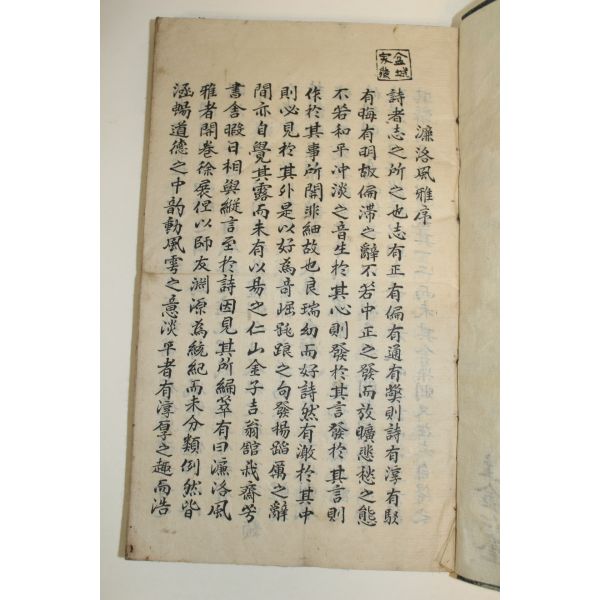 金城家藏
濂洛風雅序
詩者志之所之也志有正有偏有通有蔽則詩有淳有駁
有晦有明故偏滯之辭不若中正之發而放曠悲愁之態
不若和平冲淡之音生於其心則發於其言發於其言則
作於其事所關非細故也良瑞幼而好詩然有激於其中
則必見於其外是以好為奇崛跳踉之句發揚蹈厲之辭
間亦自覺其露而未有以易之仁山金子吉翁舘我齋芳
書舍暇日相與縱言至於詩因見其所編萃有曰濂洛風
雅者開卷徐展但以師友淵源為統紀而未分類例然皆
涵暢道德之中韵動風雩之意淡平者有淳厚之趣而浩